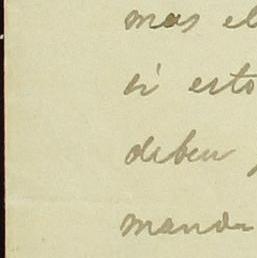 mas el
si esto
deben
manda